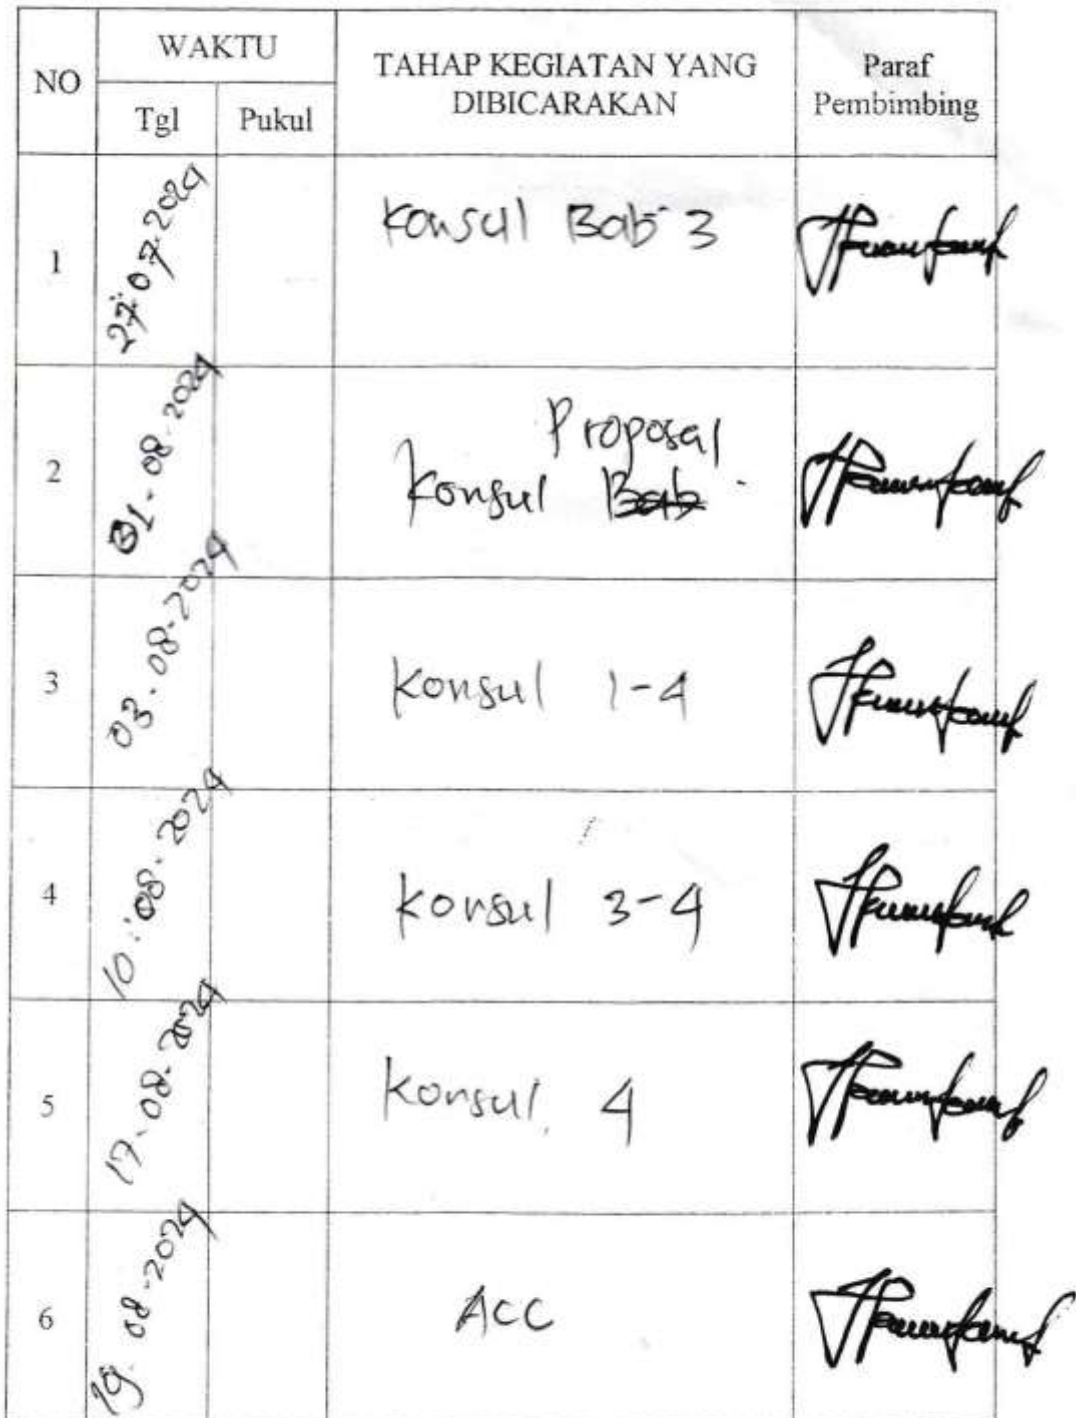 NO WAKTU TAHAP KEGIATAN YANG DIBICARAKAN Paraf Pembimbing
Tgl Pukul
1 27-07-2024 Konsul Bab 3
2 01-08-2024 Konsul Bab Proposal
3 03-08-2024 Konsul 1-4
4 10-08-2024 Konsul 3-4
5 17-08-2024 Konsul 4
6 19-08-2024 ACC